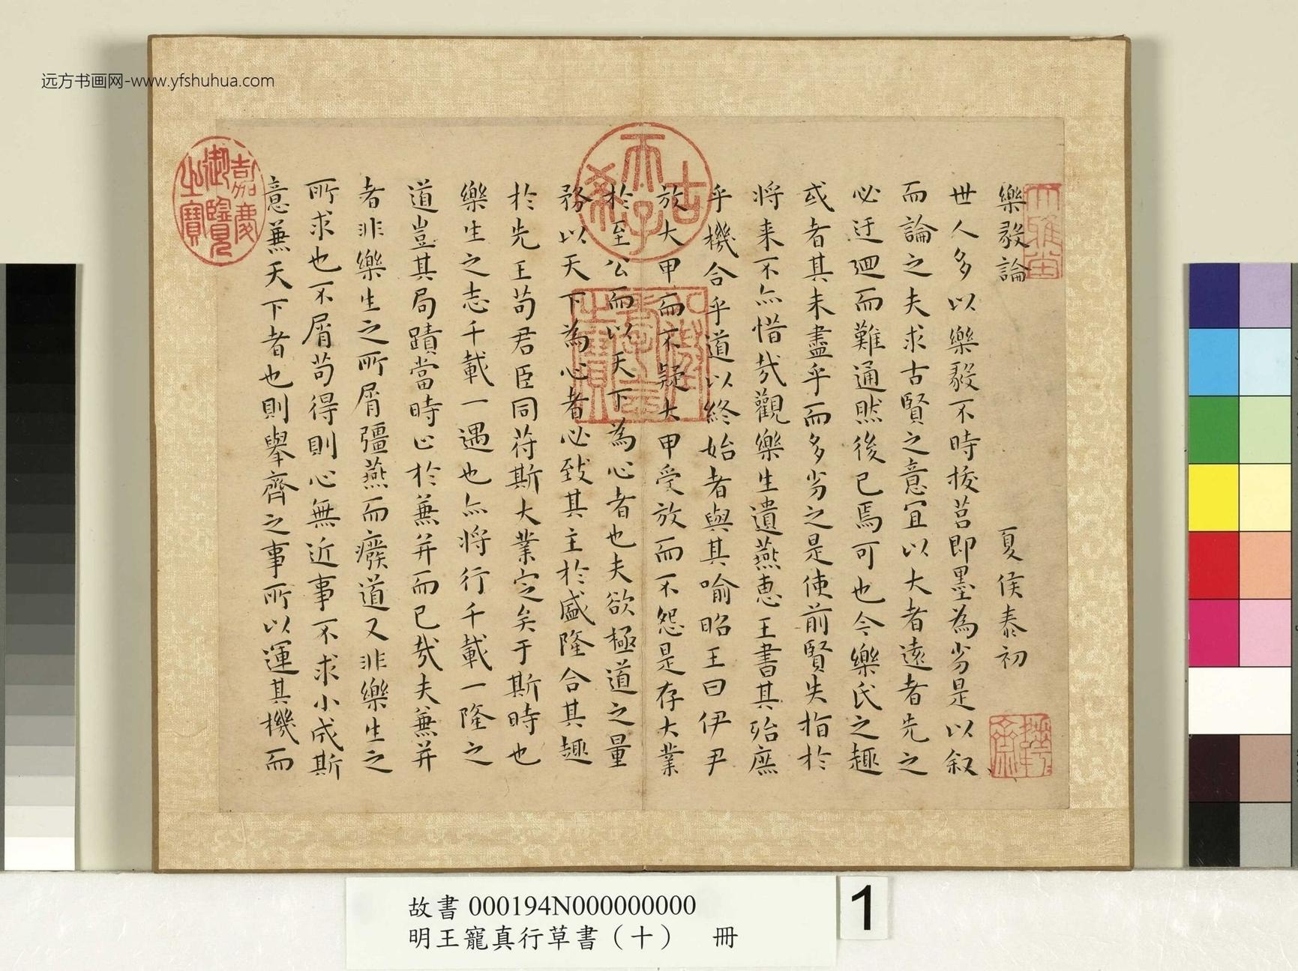 远方书画网-www.yfshuhua.com
樂毅論 夏侯泰初
世人多以樂毅不時拔莒即墨為劣是以叙
而論之夫求古賢之意宜以大者遠者先之
必迂迴而難通然後已焉可也今樂氏之趣
或者其未盡乎而多劣之是使前賢失指於
将来不亦惜哉觀樂生遺燕惠王書其殆庶
乎機合乎道以終始者與其喻昭王曰伊尹
放大甲而不疑大甲受放而不怨是存大業
於至公而以天下為心者也夫欲極道之量
務以天下為心者必致其主於盛隆合其趣
於先王苟君臣同苻斯大業定矣于斯時也
樂生之志千載一遇也亦将行千載一隆之
道豈其局蹟當時止於蒹并而已哉夫蒹并
者非樂生之所屑彊燕而癈道又非樂生之
所求也不屑苟得則心無近事不求小成斯
意蒹天下者也則舉齊之事所以運其機而
大雅堂
乾隆
古希天子
嘉慶御覽之寶
故書 000194N000000000
明王寵真行草書（十） 冊
1